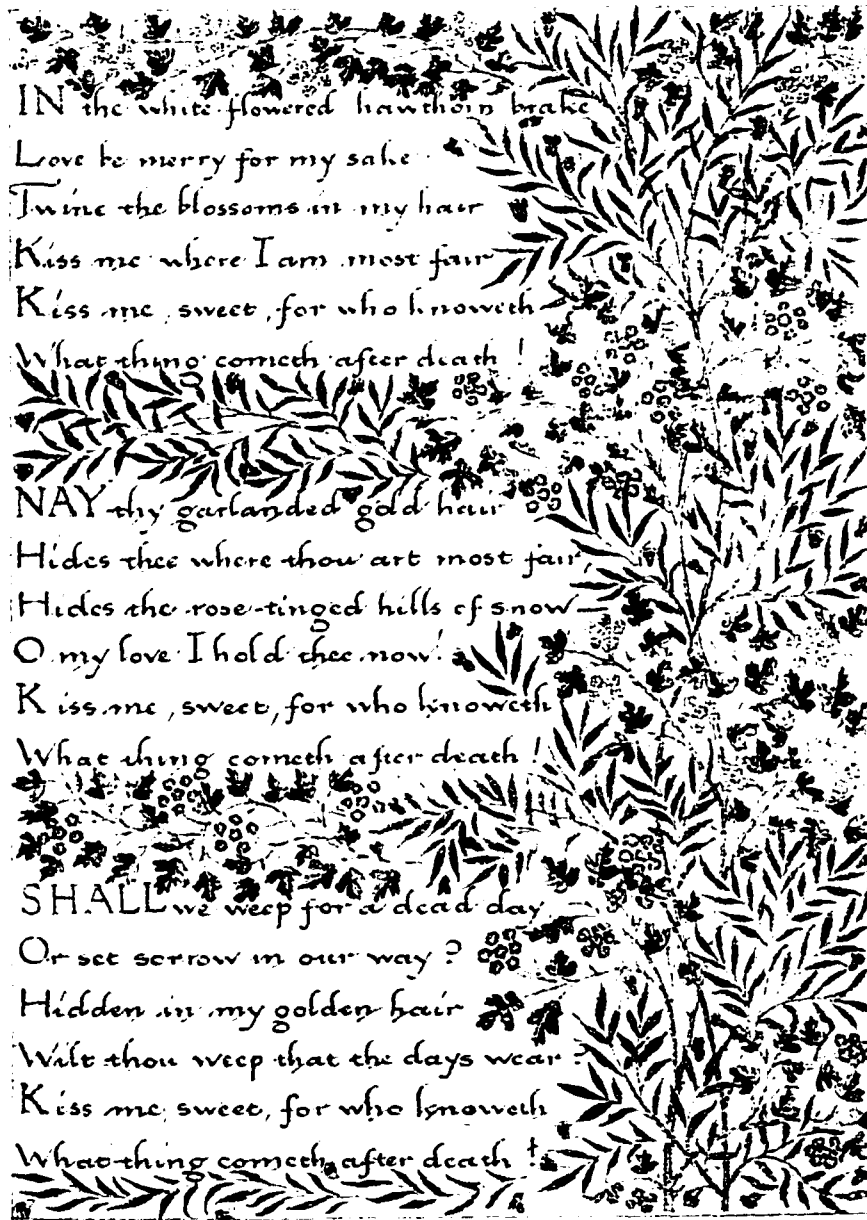 IN the white-flowered hawthorn brake
Love be merry for my sake
Twine the blossoms in my hair
Kiss me where I am most fair
Kiss me, sweet, for who knoweth
What thing cometh after death!
NAY thy garlanded gold hair
Hides thee where thou art most fair,
Hides the rose-tinged hills of snow—
O my love I hold thee now!
Kiss me, sweet, for who knoweth
What thing cometh after death!
SHALL we weep for a dead day
Or set sorrow in our way?
Hidden in my golden hair
Wilt thou weep that the days wear?
Kiss me, sweet, for who knoweth
What thing cometh after death!